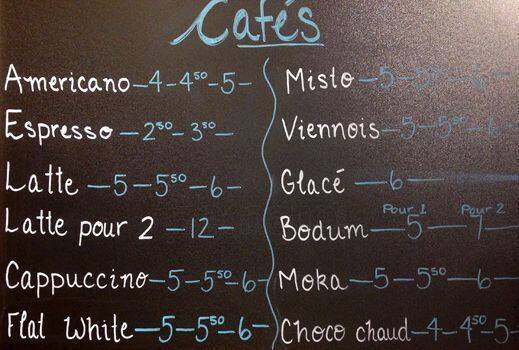 Cafés
Americano – 4 – 4⁵⁰ – 5 –
Espresso – 2⁵⁰ – 3⁵⁰ –
Latte – 5 – 5⁵⁰ – 6 –
Latte pour 2 – 12 –
Cappuccino – 5 – 5⁵⁰ – 6 –
Flat White – 5 – 5⁵⁰ – 6 –
Misto – 5 – 5⁵⁰ – 6 –
Viennois – 5 – 5⁵⁰ – 6
Glacé – 6 –
Pour 1 Pour 2
Bodum – 5 – 7 –
Moka – 5 – 5⁵⁰ – 6 –
Choco chaud – 4 – 4⁵⁰ – 5 –